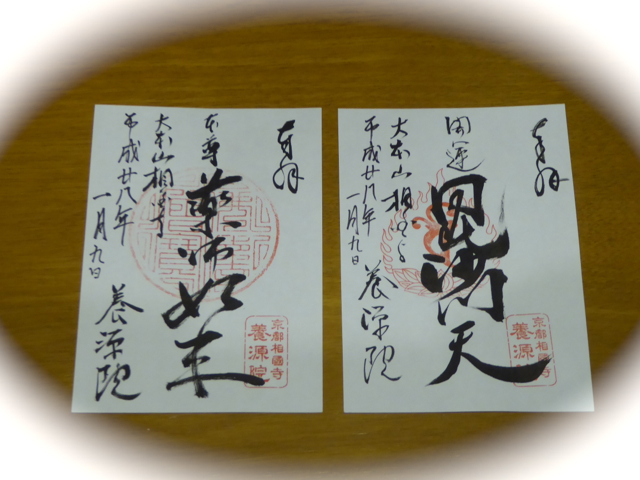 奉拝
本尊
薬師如来
大本山相国寺
平成廿八年
一月九日
養源院
京都相國寺
養源院
奉拝
開運
毘沙門天
大本山相国寺
平成廿八年
一月九日
養源院
京都相國寺
養源院